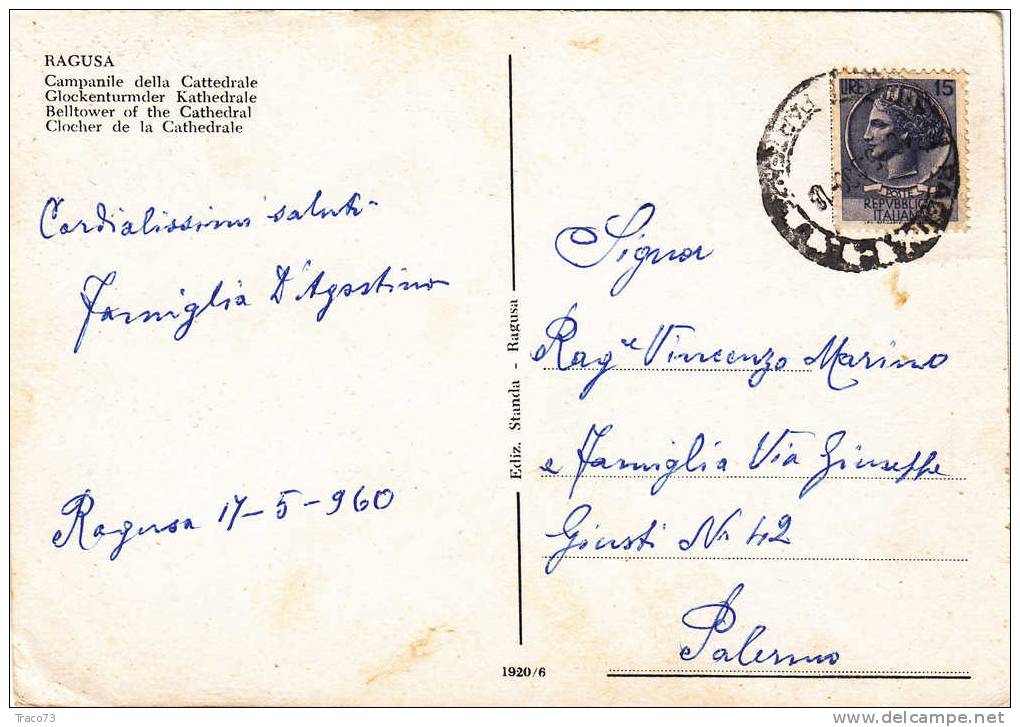 RAGUSA
Campanile della Cattedrale
Glockenturmder Kathedrale
Belltower of the Cathedral
Clocher de la Cathedrale
Cordialissimi saluti
Famiglia D'Agostino
Ragusa 17-5-960
Ediz. Standa - Ragusa
1920/6
LIRE 15
POSTE
REPVBBLICA
ITALIANA
Signor
Rag.re Vincenzo Marino
e Famiglia Via Giuseppe
Giusti N. 42
Palermo
Traco73
delcampe.net